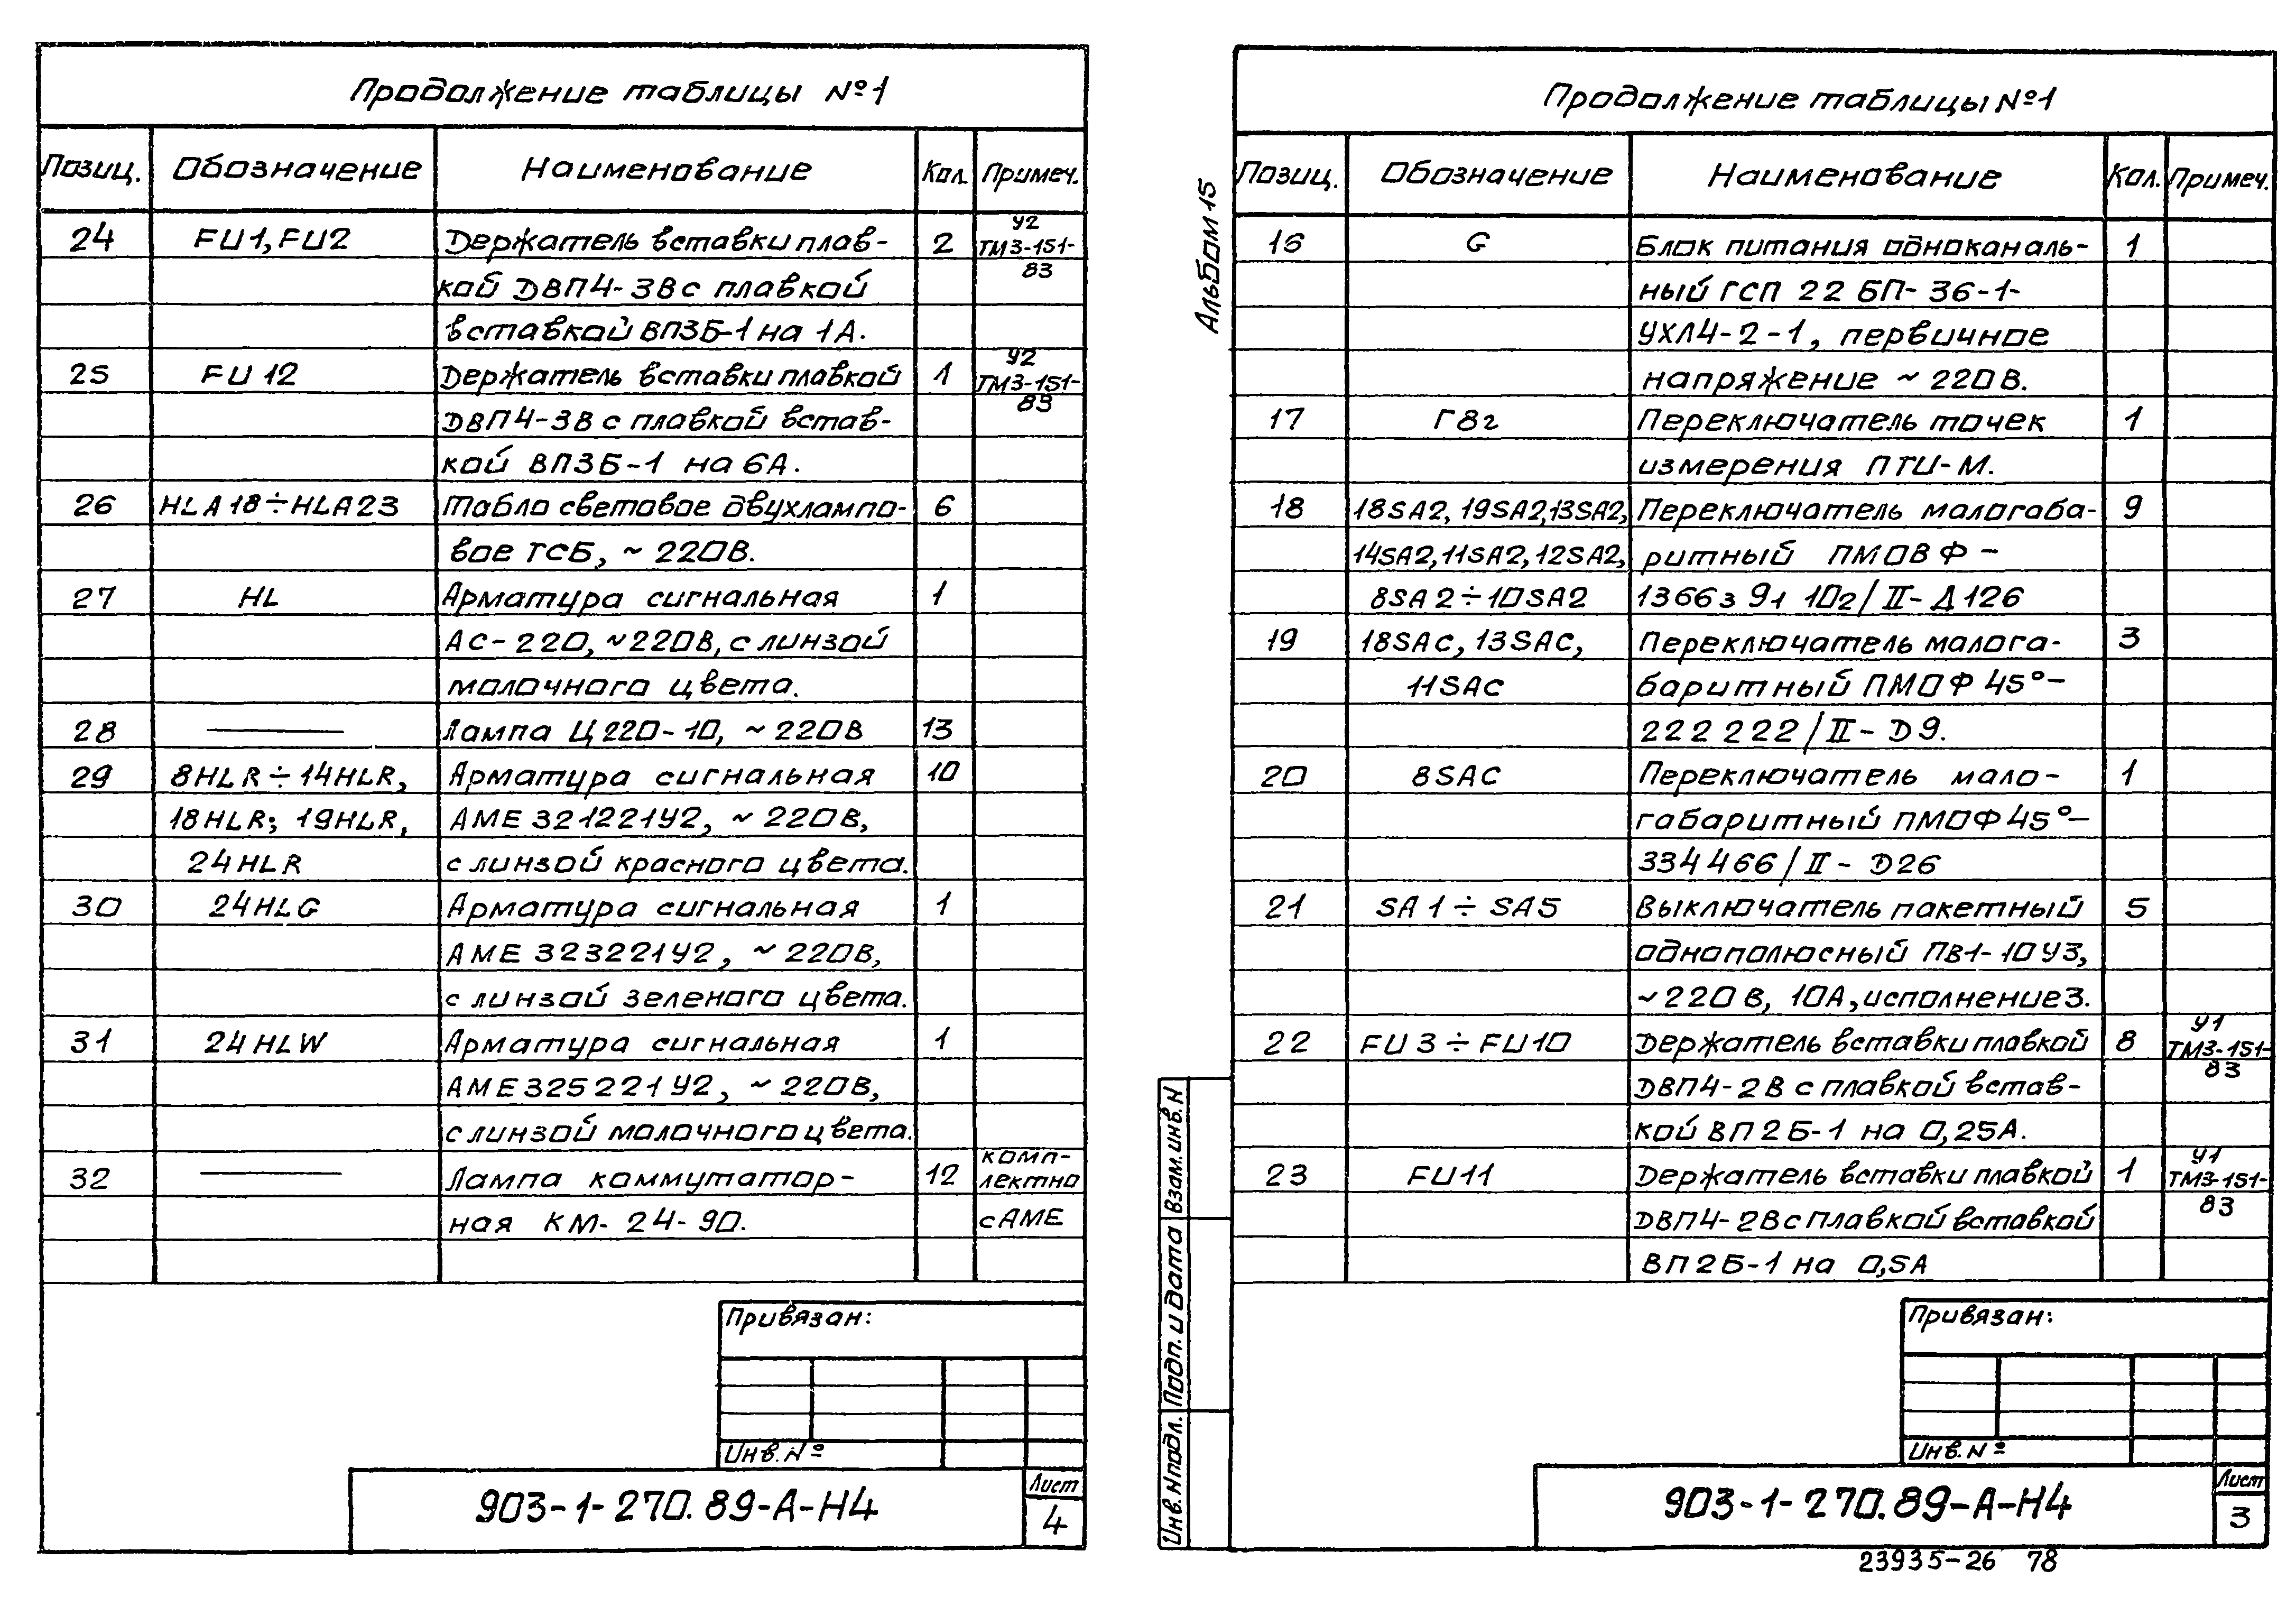 Продолжение таблицы №1
Позиц. Обозначение Наименование Кол. Примеч.
24 FU1, FU2 Держатель вставки плав- 2 У2 ТМ3-151-
кой ДВП4-3В с плавкой 83
вставкой ВП3Б-1 на 1А.
25 FU12 Держатель вставки плавкой 1 У2 ТМ3-151-
ДВП4-3В с плавкой встав- 83
кой ВП3Б-1 на 6А.
26 HLA18÷HLA23 Табло световое двухлампо- 6
вое ТСБ, ~220В.
27 HL Арматура сигнальная 1
АС-220, ~220В, с линзой
молочного цвета.
28 — Лампа Ц220-10, ~220В 13
29 8HLR÷14HLR, Арматура сигнальная 10
18HLR; 19HLR, АМЕ321221У2, ~220В,
24HLR с линзой красного цвета.
30 24HLG Арматура сигнальная 1
АМЕ323221У2, ~220В,
с линзой зеленого цвета.
31 24HLW Арматура сигнальная 1
АМЕ325221У2, ~220В,
с линзой молочного цвета.
32 — Лампа коммутатор- 12 комп- лектно
ная КМ-24-90. с АМЕ
Привязан:
Инв. №
903-1-270.89-А-Н4
Лист
4
Альбом 15
Продолжение таблицы №1
Позиц. Обозначение Наименование Кол. Примеч.
16 G Блок питания одноканаль- 1
ный ГСП 22 БП-36-1-
УХЛ4-2-1, первичное
напряжение ~220В.
17 Г8г Переключатель точек 1
измерения ПТИ-М.
18 18SA2, 19SA2, 13SA2, Переключатель малогаба- 9
14SA2, 11SA2, 12SA2, ритный ПМОВФ-
8SA2÷10SA2 1366з 91 102/II-Д126
19 18SAC, 13SAC, Переключатель малога- 3
11SAC баритный ПМОФ45°-
222222/II-D9.
20 8SAC Переключатель мало- 1
габаритный ПМОФ45°-
334466/II-D26
21 SA1÷SA5 Выключатель пакетный 5
однополюсный ПВ1-10У3,
~220В, 10А, исполнение 3.
22 FU3÷FU10 Держатель вставки плавкой 8 У1 ТМ3-151-
ДВП4-2В с плавкой встав- 83
кой ВП2Б-1 на 0,25А.
23 FU11 Держатель вставки плавкой 1 У1 ТМ3-151-
ДВП4-2В с плавкой вставкой 83
ВП2Б-1 на 0,5А
Взам. инв. N
Подп. и дата
Инв. N подл.
Привязан:
Инв. №
903-1-270.89-А-Н4
Лист
3
23935-26 78